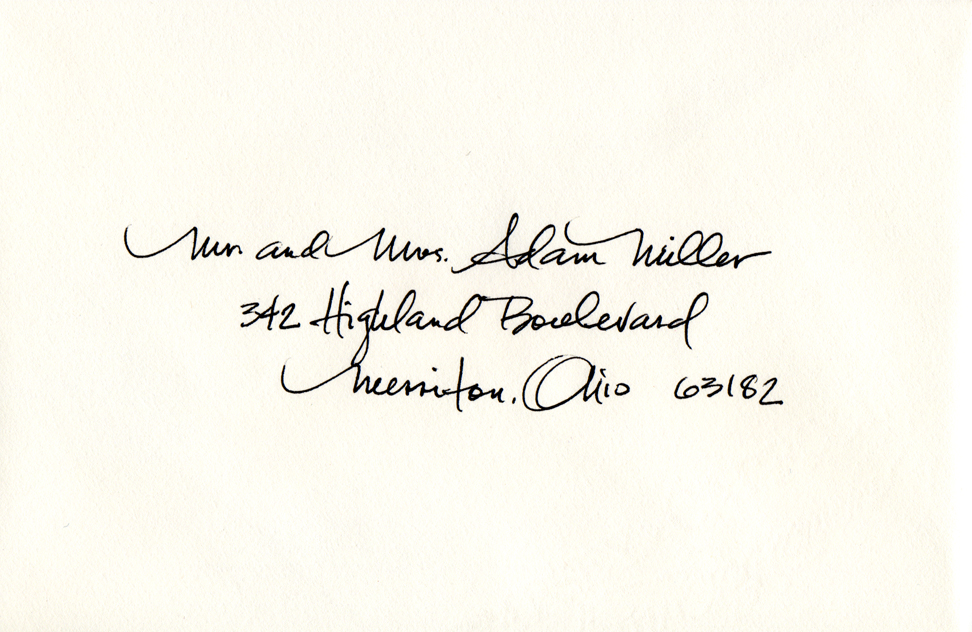 Mr. and Mrs. Adam Miller
342 Highland Boulevard
Merriton, Ohio 63182